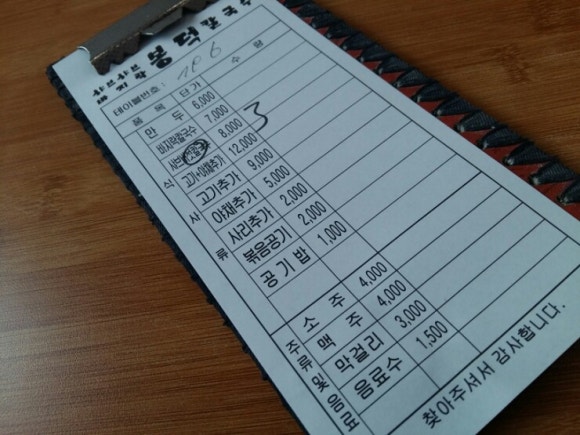 샤브샤브
바지락 봉덕칼국수
테이블번호:
품 목 단가 수 량
식 사 류
만 두 6,000
바지락칼국수 7,000
샤브 8,000 3
고기+야채추가 12,000
고기추가 9,000
야채추가 5,000
사리추가 2,000
볶음공기 2,000
공 기 밥 1,000
주류 및 음료
소 주 4,000
맥 주 4,000
막걸리 3,000
음료수 1,500
찾아주셔서 감사합니다.